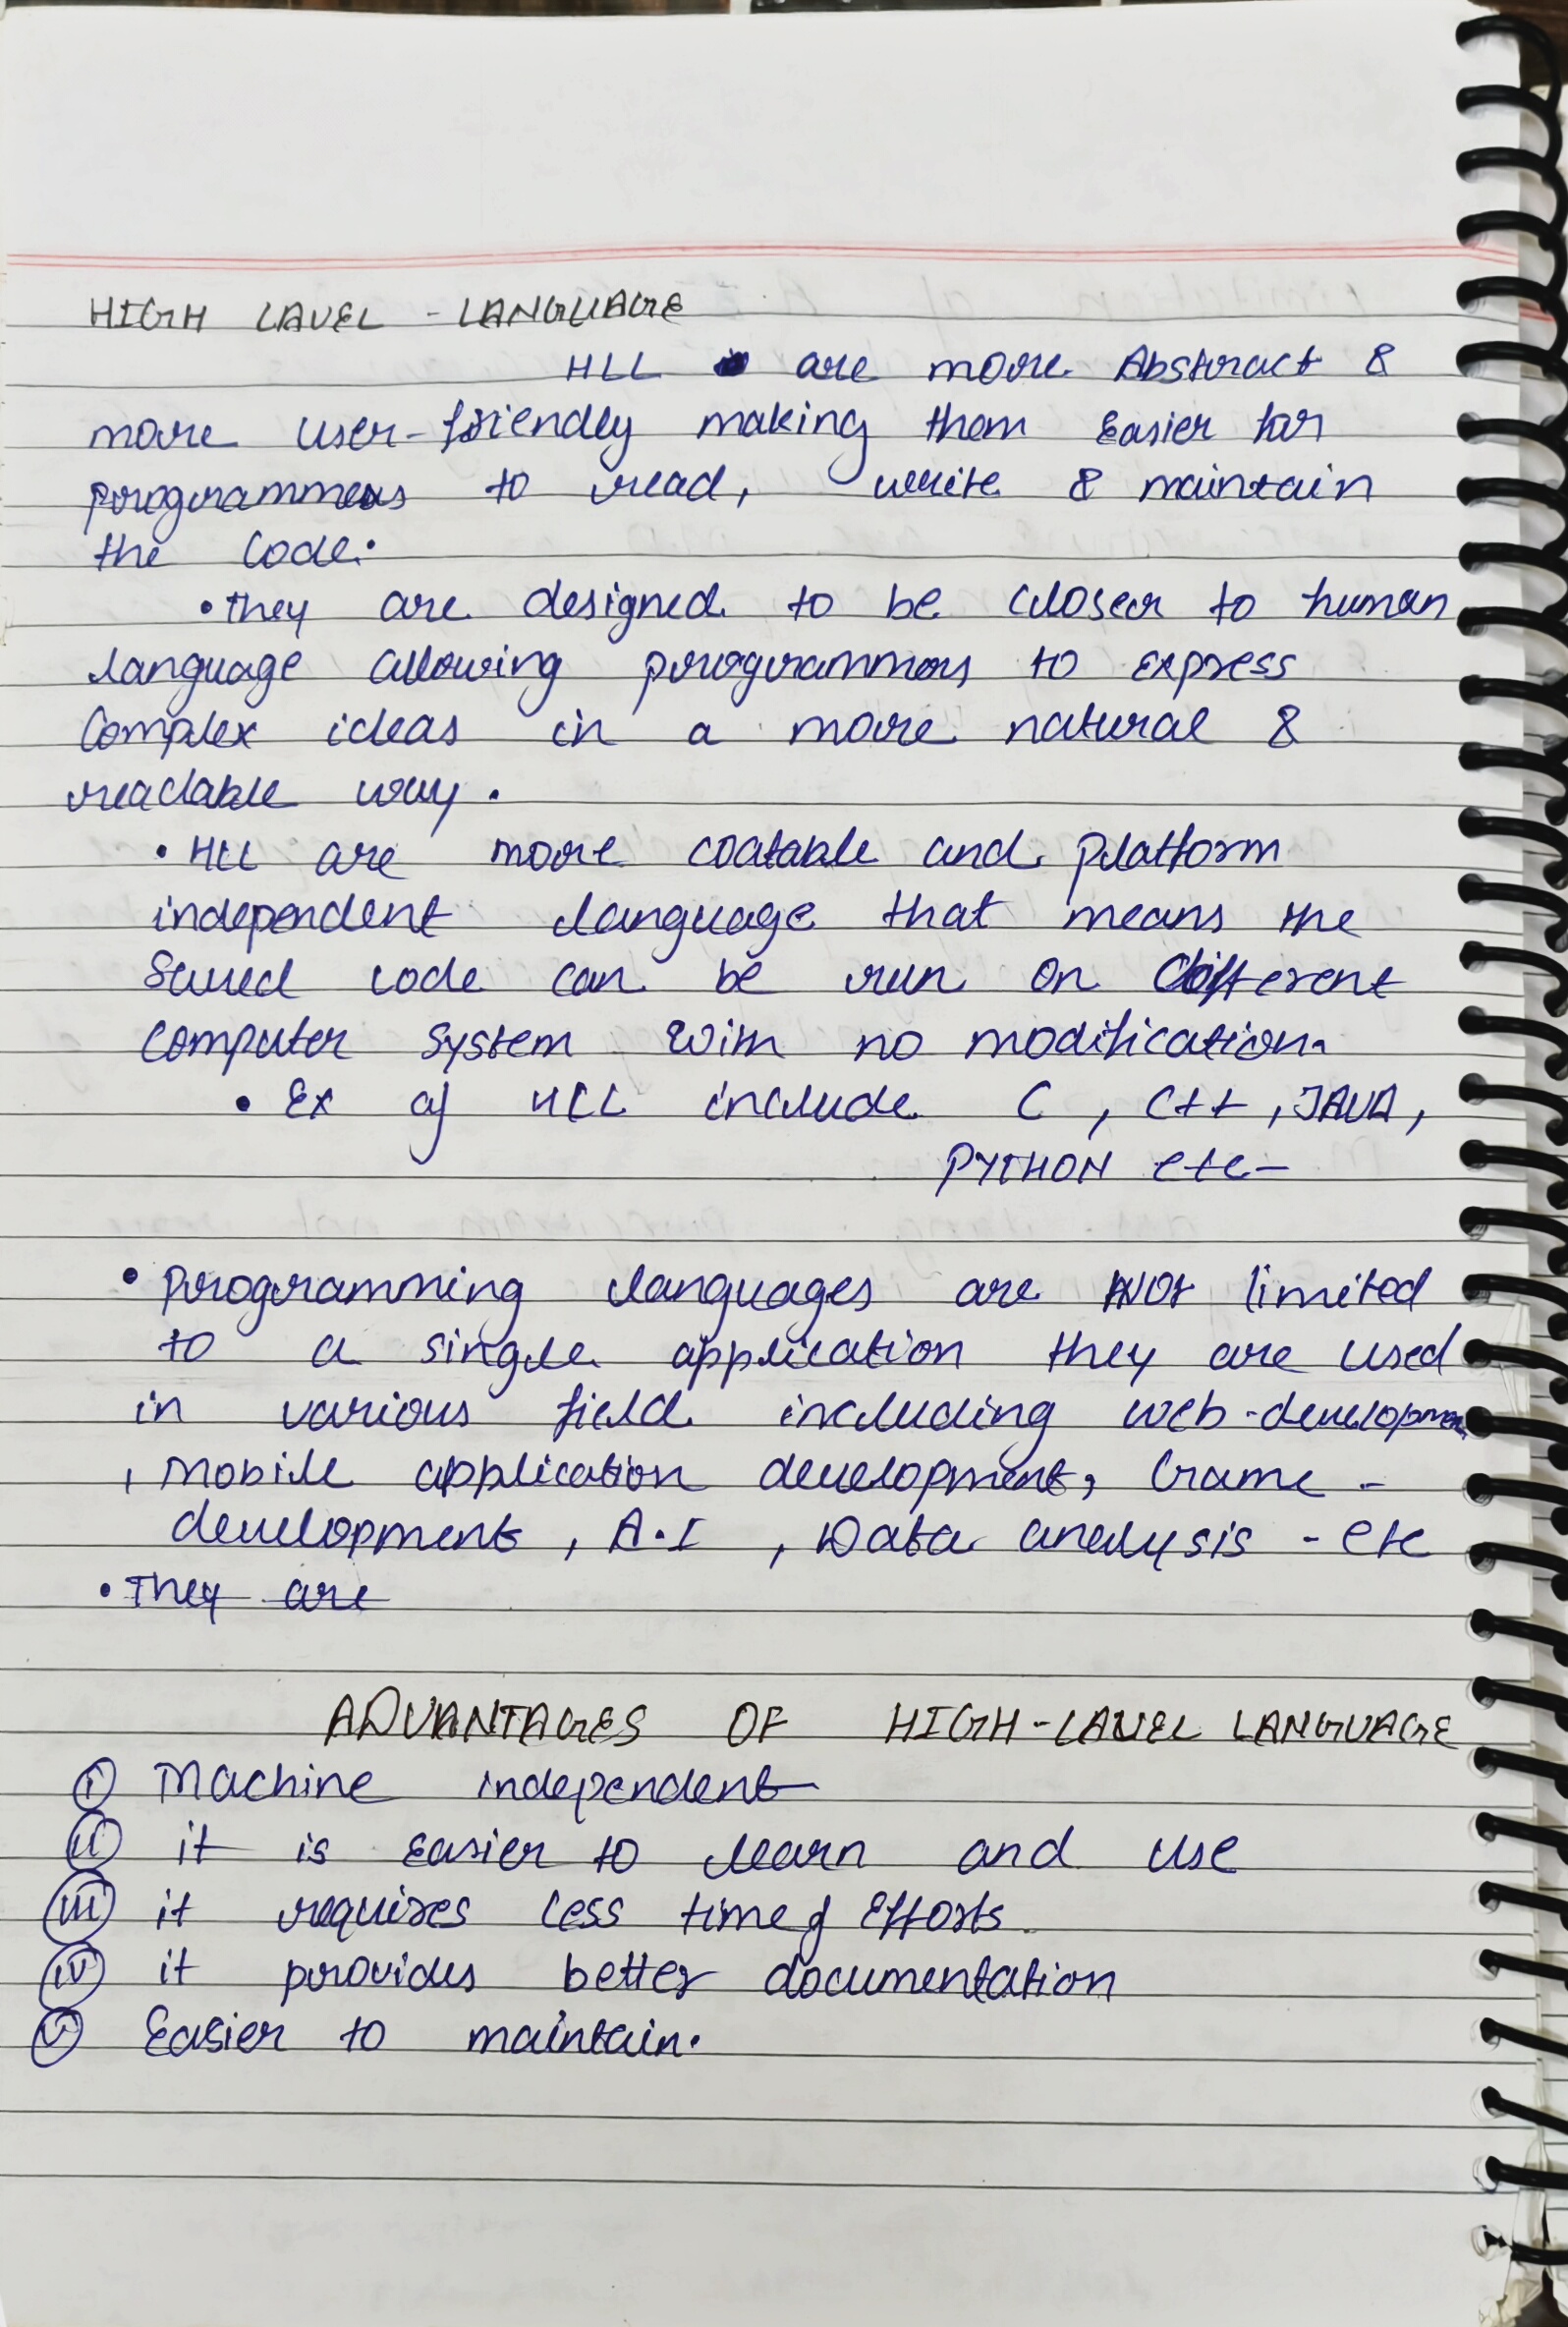 HIGH LAVEL - LANGUAGE
HLL are more Abstract &
more user-friendly making them Easier for
programmers to read, write & maintain
the Code.
• they are designed to be closer to human
language allowing programmers to express
Complex ideas in a more natural &
readable way.
• HLL are more and platform
independent language that means the
code can be run on different
computer system with no modification.
• Ex of HLL include C, C++, JAVA,
PYTHON etc-
• programming languages are NOt limited
to a single application they are used
in various field including web-developmen
, mobile application development, Game -
development, A.I, Data analysis - etc
• They are
ADVANTAGES OF HIGH-LAVEL LANGUAGE
(i) Machine independent
(ii) it is easier to learn and use
(iii) it requires less time & Efforts.
(iv) it provides better documentation
(v) Easier to maintain.